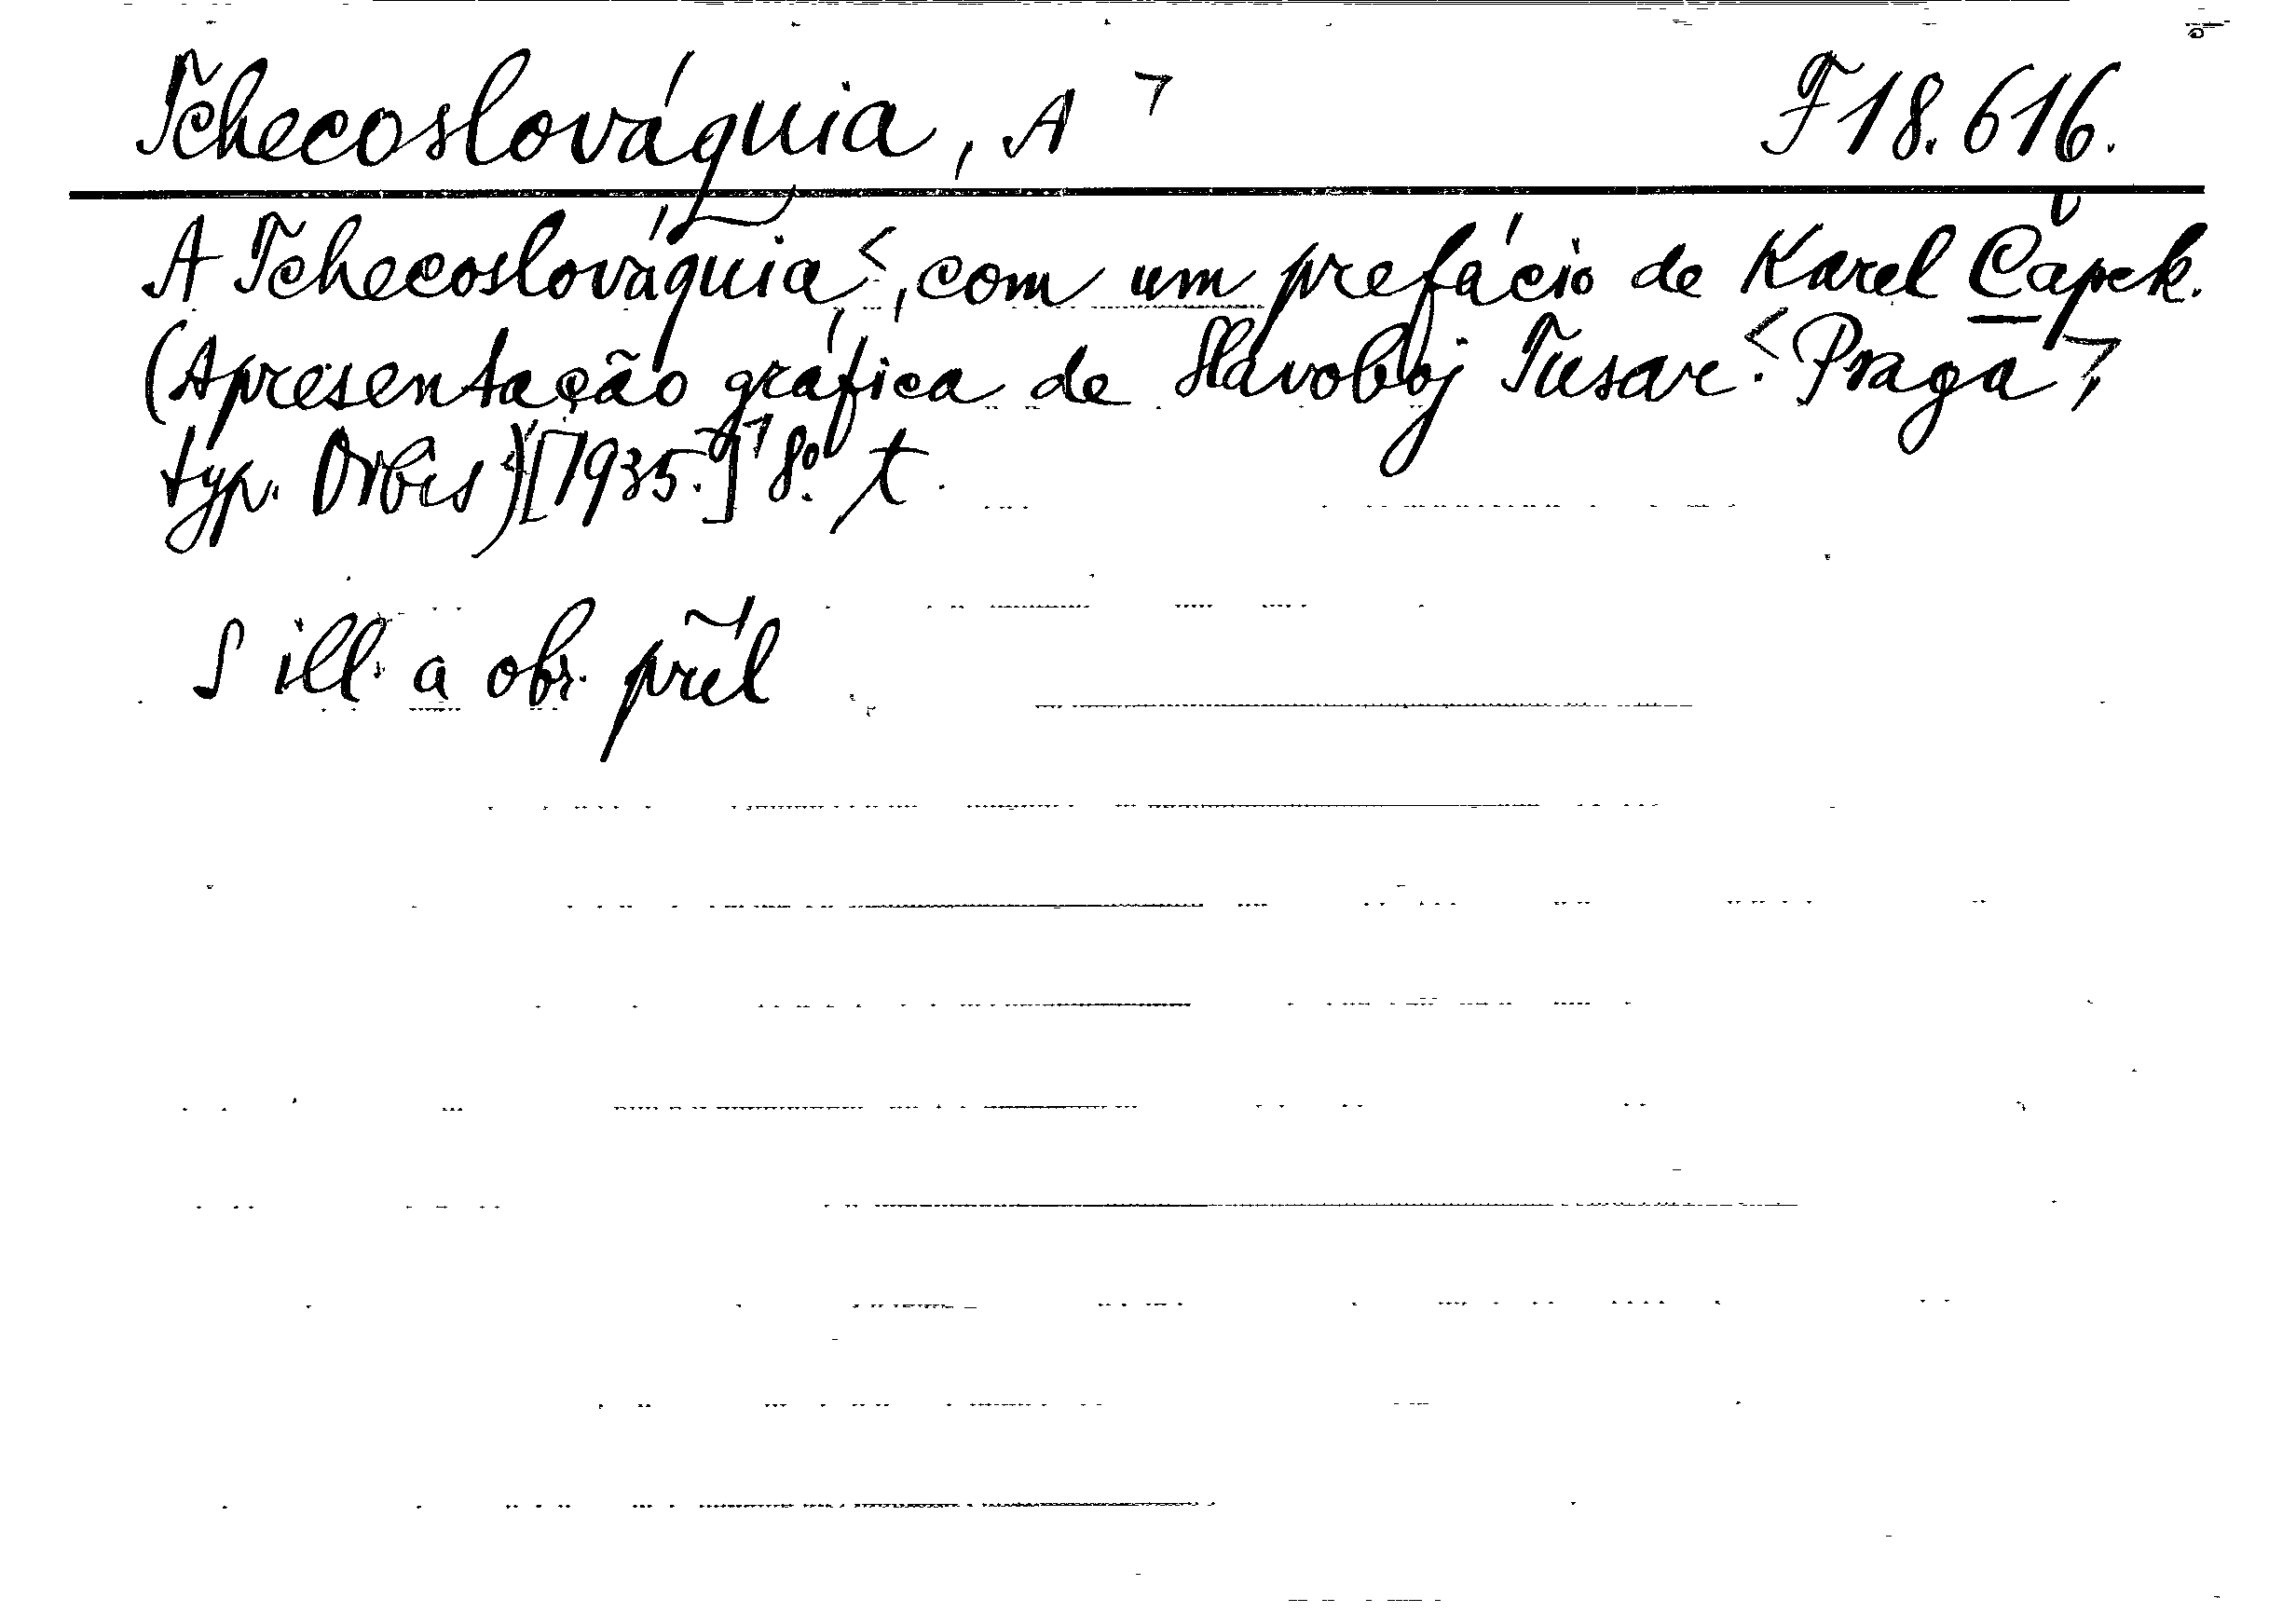 Tchecoslováquia, A ⌝ F 18.616.
A Tchecoslováquia <, com um prefácio de Karel Čapek.
(Apresentação gráfica de Slavoboj Tusar. < Praga ⌝,
typ. Orbis) [1935.] ⌝ 8º. t.
S ill. a obr. příl